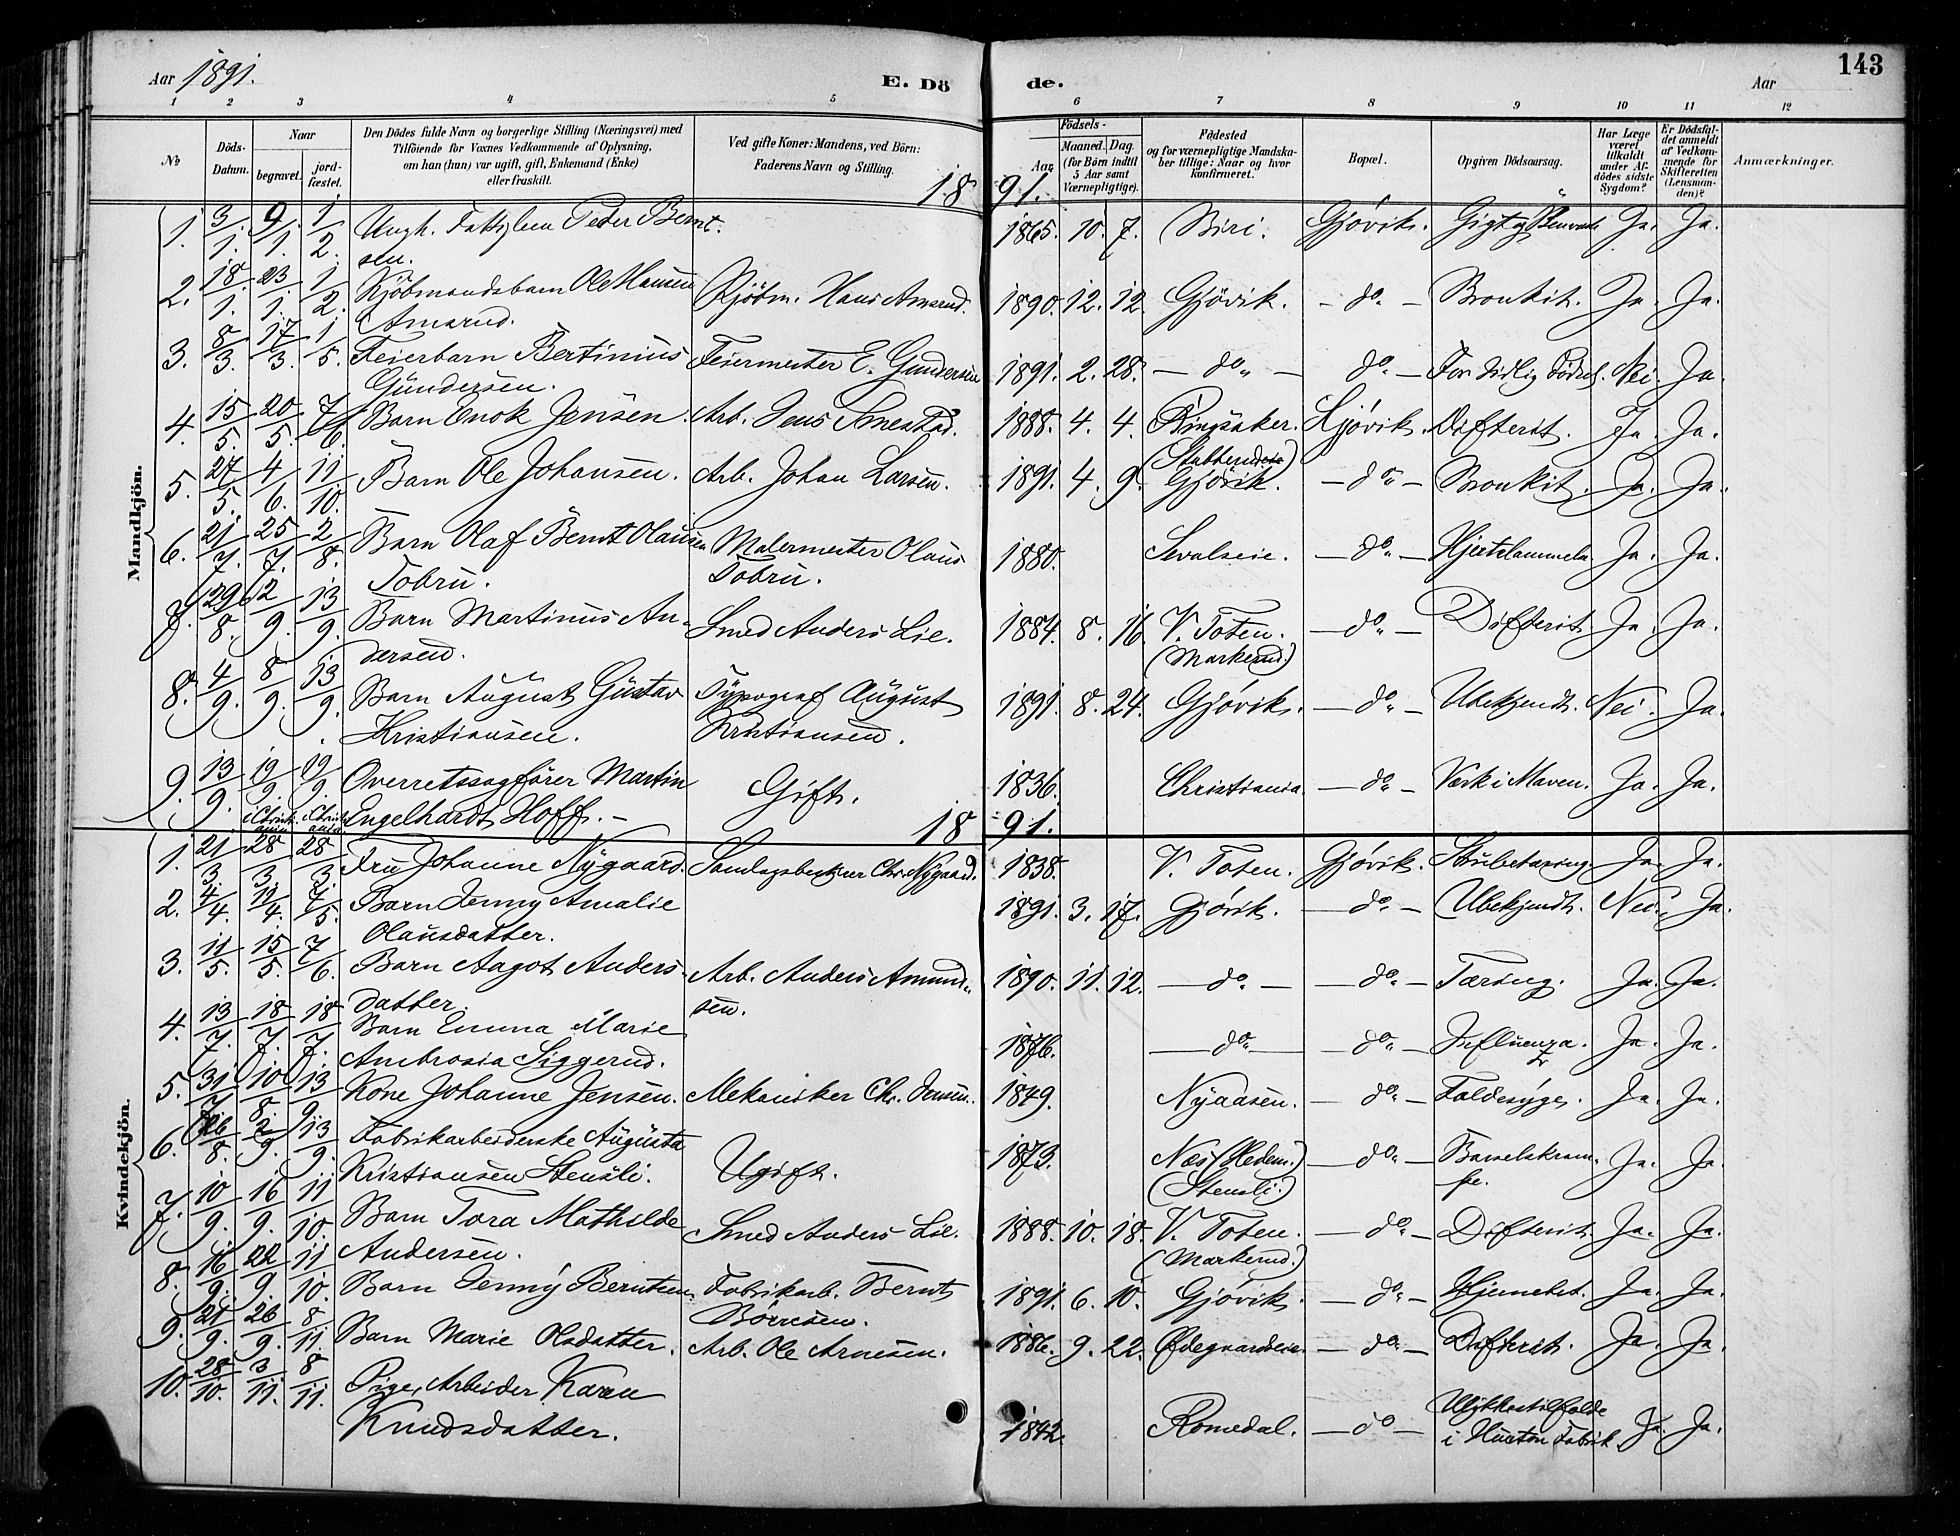 Aar 1891. E. Dö de. Aar 143
1 2 3 4 5 6 7 8 9 10 11 12
No
Döds-Datum.
Naar
begravet. jord-fæstet.
Den Dödes fulde Navn og borgerlige Stilling (Næringsvei) med
Tilföiende for Voxnes Vedkommende af Oplysning,
om han (hun) var ugift, gift, Enkemand (Enke)
eller fraskilt.
Ved gifte Koner: Mandens, ved Börn:
Faderens Navn og Stilling.
Födsels-
Aar. Maaned. Dag.
(for Börn indtil
5 Aar samt
Værnepligtige).
Födested
og for værnepligtige Mandska-
ber tillige: Naar og hvor
konfirmeret.
Bopæl.
Opgiven Dödsaarsag.
Har Læge
været
tilkaldt
under Af-
dödes sidste
Sygdom?
Er Dödsfal-
det anmeldt
af Vedkom-
mende for
Skifteretten
(Lensman-
den)?
Anmærkninger.
1891.
Mandkjön.
1. 3/1. 9/1. 1/2. Ungk. Peder Bernt- 1865. 10. 7. Biri. Gjövik. Gigt og Ja. Ja.
sen.
2. 18/1. 23/1. 1/2. Kjöbmandsbarn Ole Hansen Kjöbm. Hans Amrud. 1890. 12. 12. Gjövik. - do - Bronkit. Ja. Ja.
Amrud.
3. 8/3. 17/3. 1/5. Feierbarn Bertinius Feiermester E. Gundersen 1891. 2. 28. - do - do - For tidlig Födsel. Nei. Ja.
Gundersen.
4. 15/5. 20/5. 7/6. Barn Enok Jensen. Arb. Jens Smestad. 1888. 4. 4. Ringsaker. Gjövik. Difterit. Ja. Ja.
5. 27/5. 4/6. 11/10. Barn Ole Johansen. Arb. Johan Larsen. 1891. 4. 9. Gjövik. - do - Bronkit. Ja. Ja.
6. 21/7. 25/7. 2/8. Barn Olaf Bernt Olausen Malermester Olaus 1880. - do - Hjertelammelse Ja. Ja.
Tobru. Tobru.
7. 29/8. 2/9. 13/9. Barn Martinus An- Smed Anders Lie. 1884. 8. 16. V. Toten. - do - Difterit. Ja. Ja.
dersen. (Markerud.)
8. 4/9. 8/9. 13/9. Barn August Gustav Typograf August 1891. 8. 24. Gjövik. - do - Ubekjendt. Nei. Ja.
Kristiansen. Kristiansen.
9. 13/9. 19/9. 19/9. Overretssagförer Martin Gift. 1836. Christiania. - do - Værk i Maven. Ja. Ja.
Engelhardt Hoff. -
1891.
Kvindekjön.
1. 21/3. 28/3. 28/3. Fru Johanne Nygaard. Chr. Nygaard. 1838. V. Toten. Gjövik. Strubetæring. Ja. Ja.
2. 4/4. 12/4. 7/5. Barn Jenny Amalie 1891. 3. 17. Gjövik. - do - Ubekjendt. Nei. Ja.
Olausdatter.
3. 11/5. 15/5. 7/6. Barn Aagot Anders- Arb. Anders Amund- 1890. 11. 12. - do - - do - Tæring. Ja. Ja.
datter. sen.
4. 13/7. 18/7. 18/7. Barn Emma Marie 1876. - do - - do - Influenza. Ja. Ja.
Ambrosia Siggerud.
5. 31/7. 10/8. 13/9. Kone Johanne Jensen. Mekaniker Chr. Jensen. 1849. Nyaasen. - do - Faldesyge. Ja. Ja.
6. 26/8. 2/9. 13/9. Fabrikarbeiderske Augusta Ugift. 1873. Næs (Hedem.) - do - Barselskram- Ja. Ja.
Kristiansen Stensli. (Stensli.) pe.
7. 10/9. 16/9. 11/10. Barn Tora Mathilde Smed Anders Lie. 1888. 10. 18. V. Toten. - do - Difterit. Ja. Ja.
Andersen. (Markerud.)
8. 16/9. 22/9. 11/10. Barn Jenny Berntsen. Fabrikarb. Bernt 1891. 6. 10. Gjövik. - do - Ja. Ja.
Börresen.
9. 21/9. 26/9. 8/11. Barn Marie Olsdatter. Arb. Ole Arnesen. 1886. 9. 22. Ødegaardseie. - do - Difterit. Ja. Ja.
10. 28/10. 3/11. 8/11. Pige, Arbeider Karen 1842. Romedal. - do - Ulykkestilfælde Ja. Ja.
Knudsdatter. i Hunton Fabrik